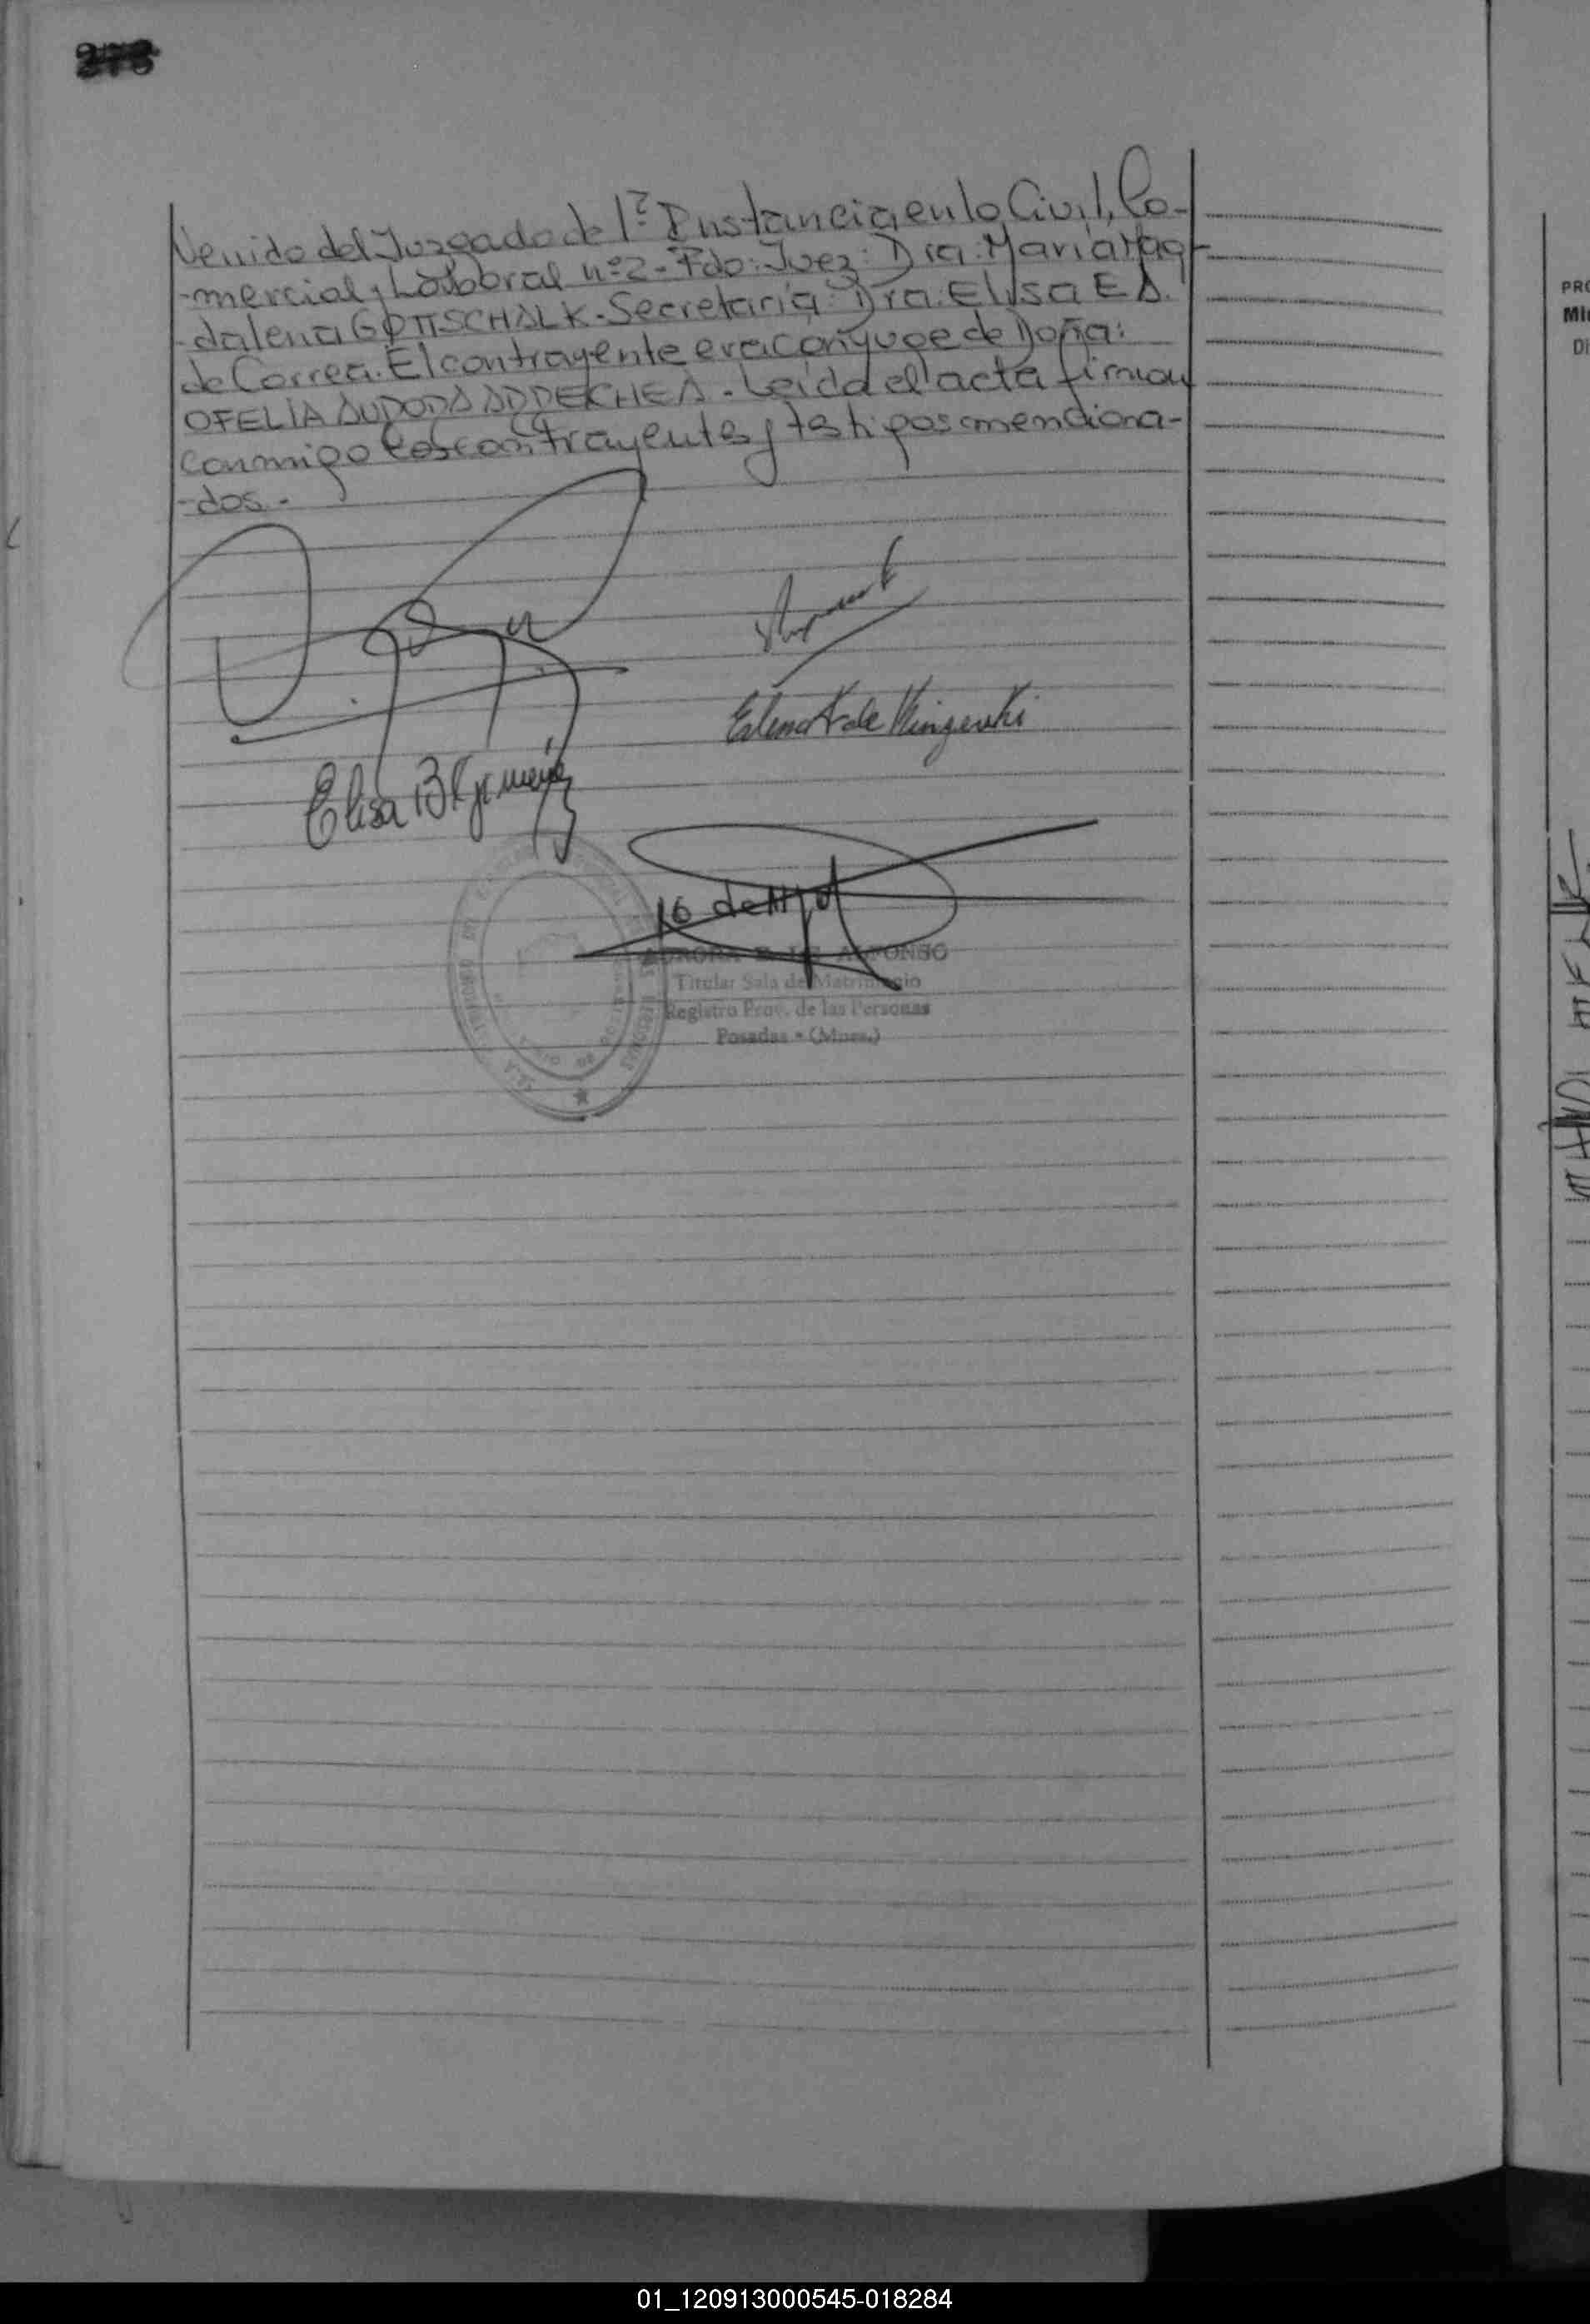 278
Venido del Juzgado de 1ª Instancia en lo Civil, Co-
-mercial y Labboral nº2- Fdo: Juez: Dra: María Mag-
-dalena GOTTSCHALK. Secretaria: Dra. Elisa E A.
de Correa. El contrayente era conyuge de Doña:
OFELIA AURORA ARRECHEA. Leída el acta firman
conmigo los contrayentes y testigos menciona-
-dos.-
Elena K de
Elisa B
16 de
AURORA ALFONSO
Titular Sala de Matrimonio
Registro Prov. de las Personas
Posadas - (Mnes.)
PRO
Mi
Di
01_120913000545-018284